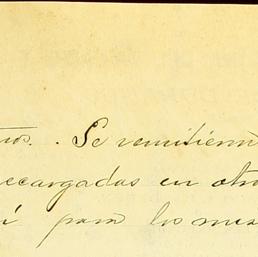 tros. . Se remitieron
recargadas en otro
í para los mes